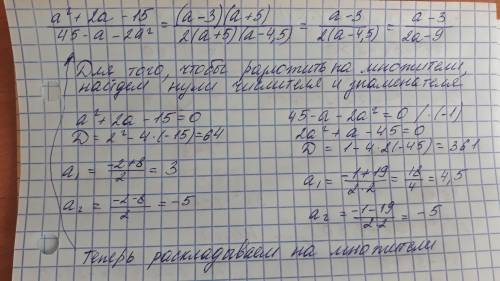 a² + 2a - 15 / 45 - a - 2a² = (a-3)(a+5) / 2(a+5)(a-4,5) = a-3 / 2(a-4,5) = a-3 / 2a-9
Для того, чтобы разложить на множители,
найдем нули числителя и знаменателя
a² + 2a - 15 = 0
D = 2² - 4·(-15) = 64
a₁ = -2+8 / 2 = 3
a₂ = -2-8 / 2 = -5
45 - a - 2a² = 0 /·(-1)
2a² + a - 45 = 0
D = 1 - 4·2(-45) = 361
a₁ = -1+19 / 2·2 = 18 / 4 = 4,5
a₂ = -1-19 / 2·2 = -5
Теперь раскладываем на множители